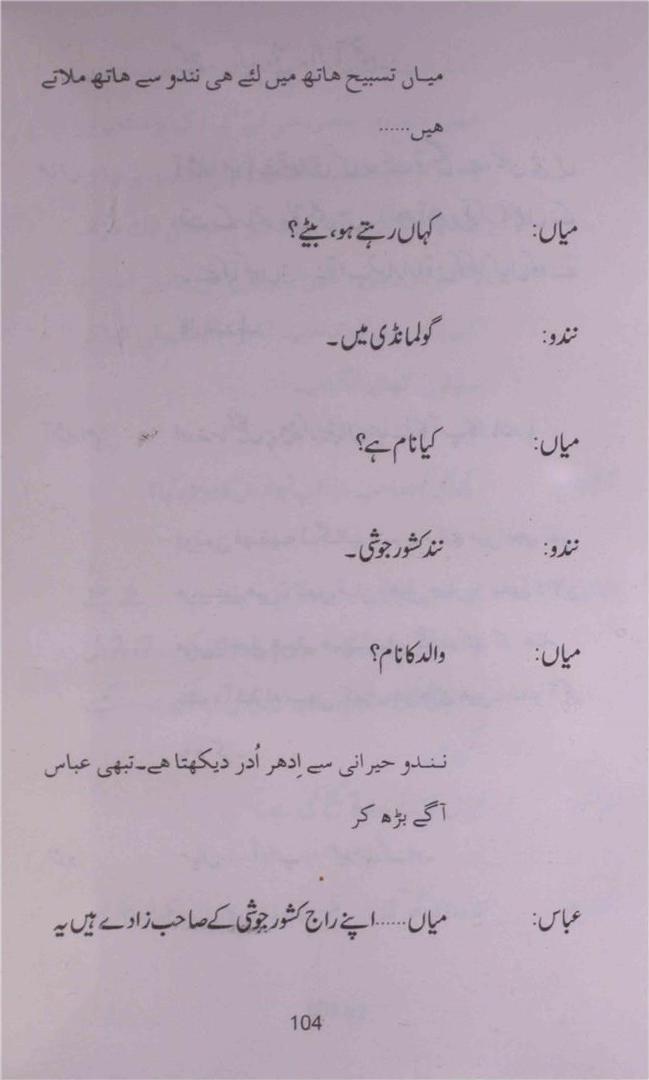 میاں تسبیح ھاتھ میں لئے ھی نندو سے ھاتھ ملاتے
ھیں......
میاں: کہاں رہتے ہو، بیٹے؟
نندو: گولمانڈی میں۔
میاں: کیا نام ہے؟
نندو: نند کشور جوشی۔
میاں: والد کا نام؟
نندو حیرانی سے اِدھر اُدر دیکھتا ھے۔ تبھی عباس
آگے بڑھ کر
عباس: میاں......اپنے راج کشور جوشی کے صاحب زادے ہیں یہ
104